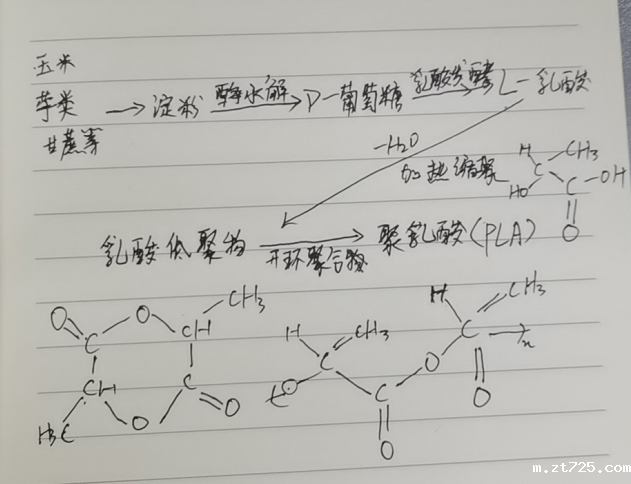 玉米
芋类 → 淀粉 酶水解 → D-葡萄糖 乳酸发酵 → L-乳酸
甘蔗等
-H2O
加热缩聚
H CH3
HO C C-OH
O
乳酸低聚物 开环聚合物 → 聚乳酸(PLA)
CH3
O O CH
C
CH C O
H3C O
H CH3
O C C O
O
H CH3
C C n
O
m.zt725.com